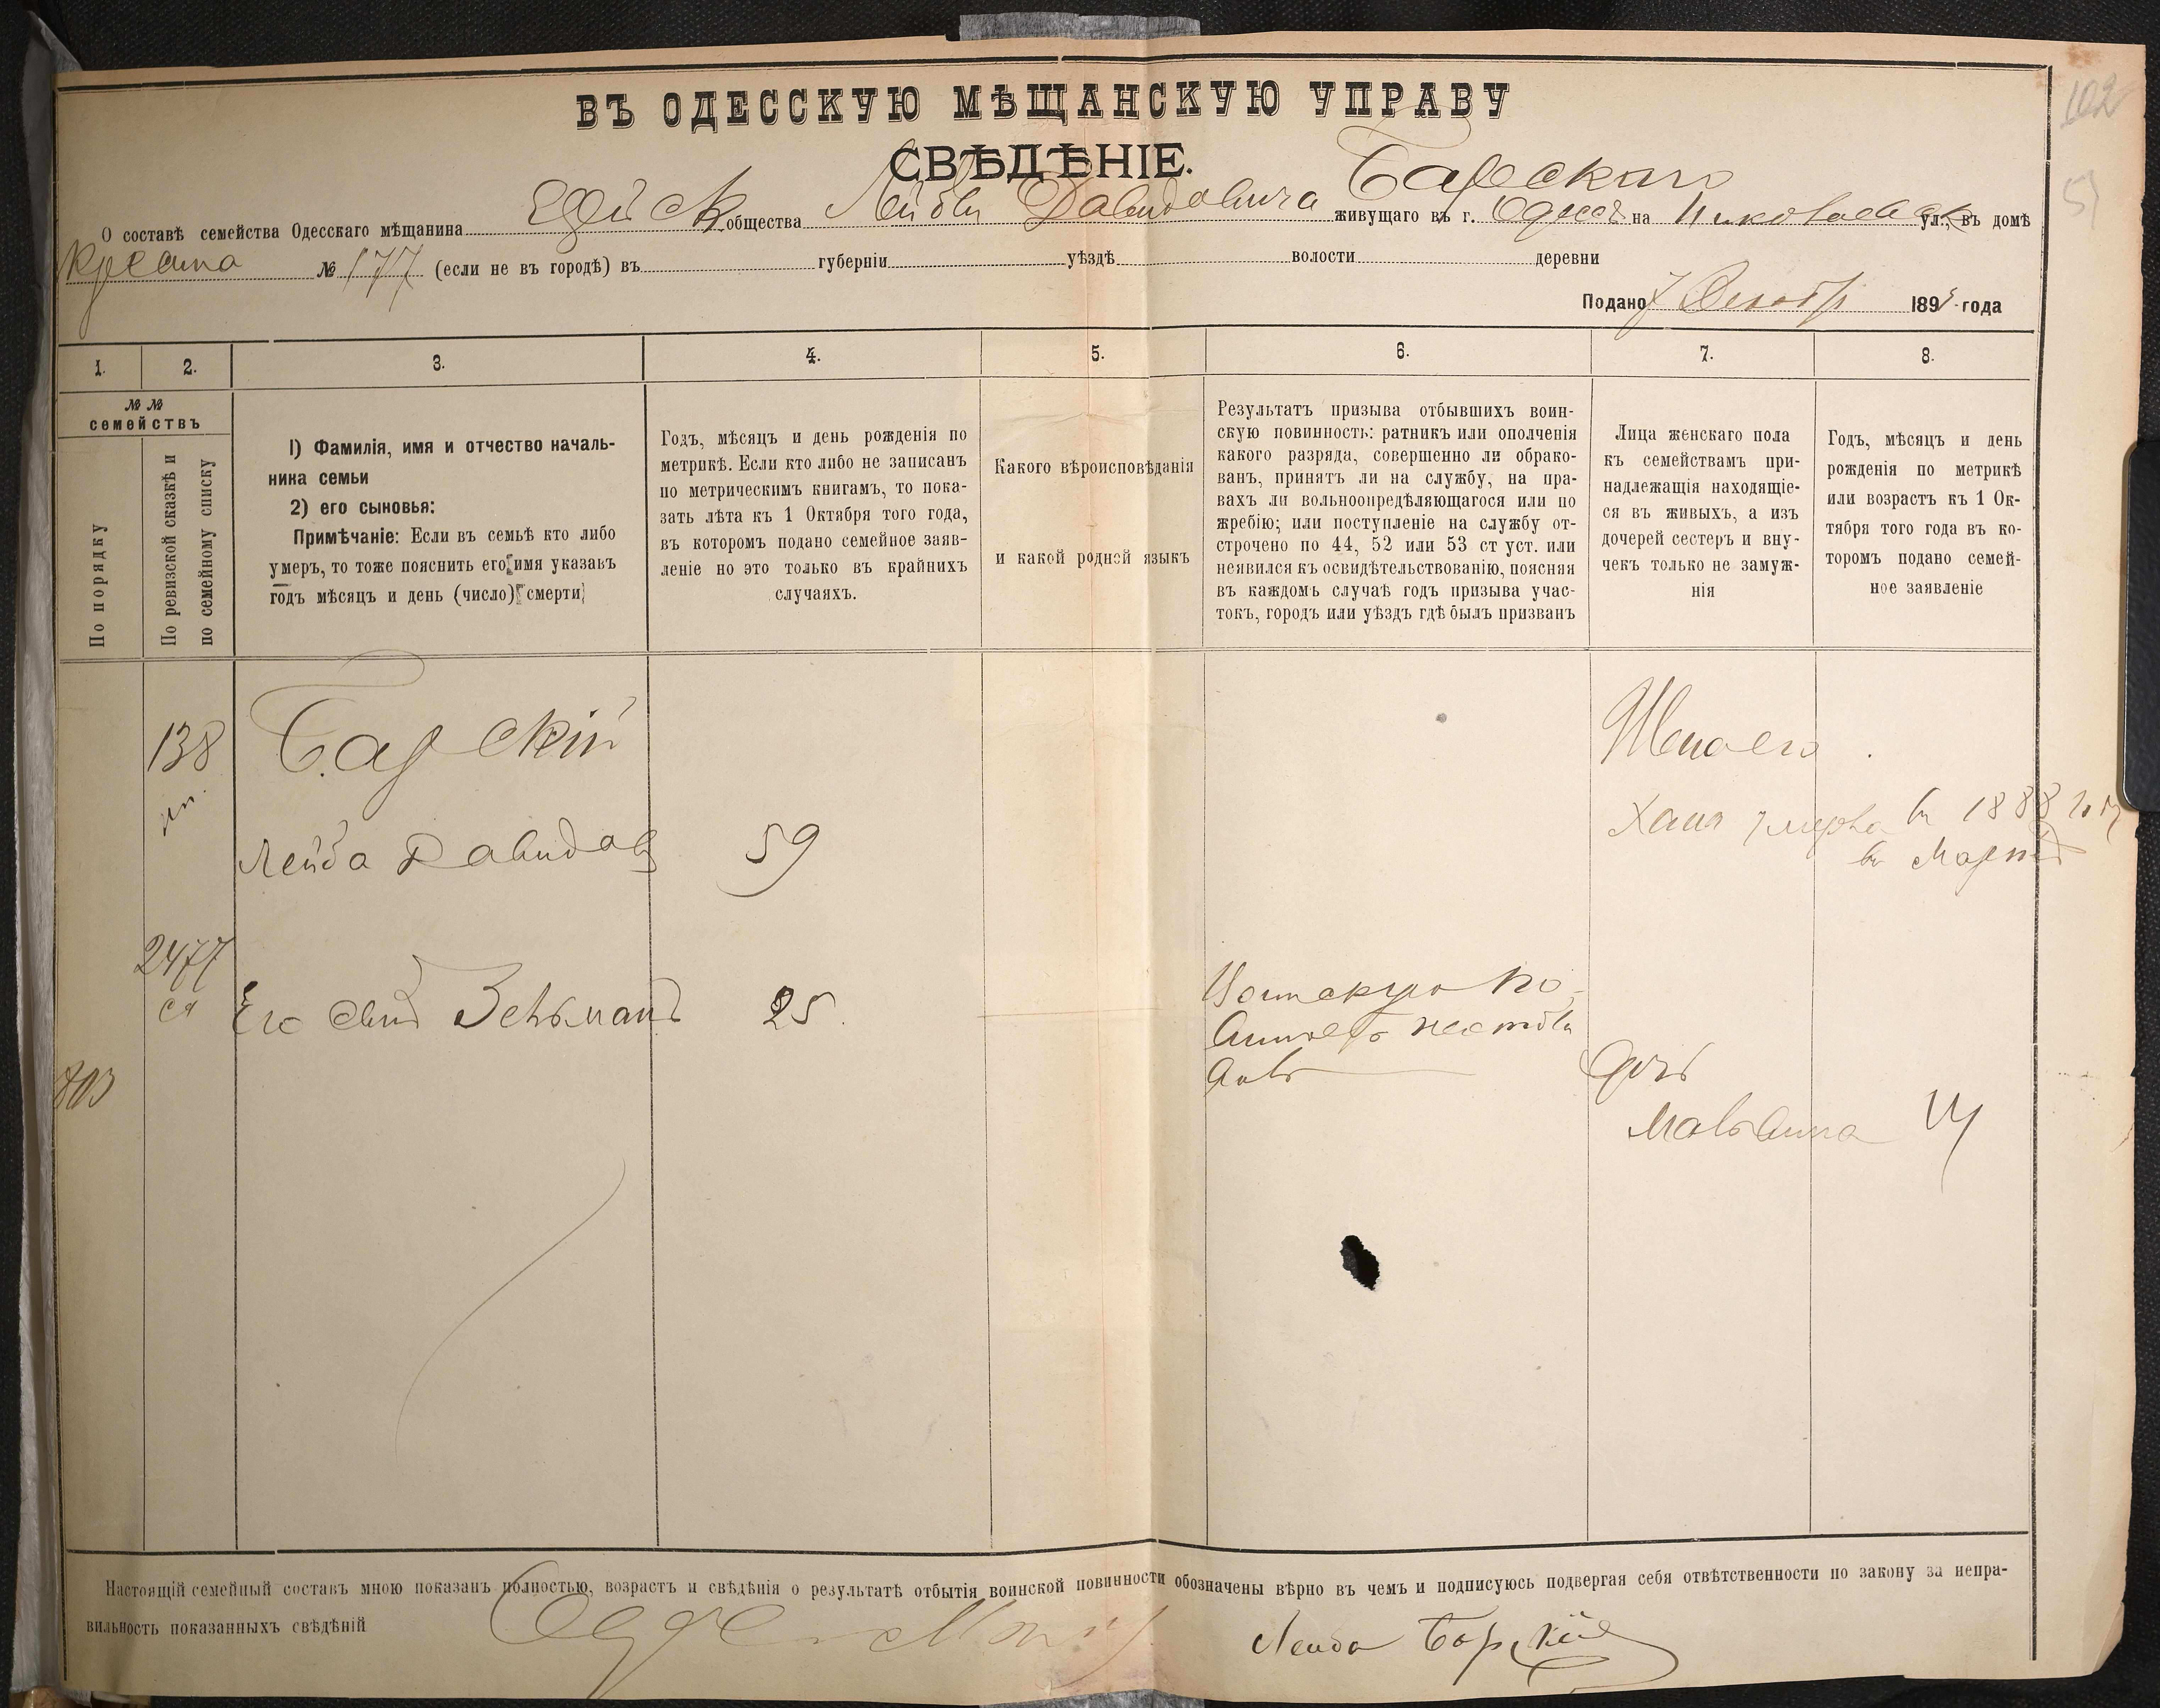 102
51
ВЪ ОДЕССКУЮ МѢЩАНСКУЮ УПРАВУ
СВѢДѢНІЕ.
О составѣ семейства Одесскаго мѣщанина общества Лейбы Давидовича Барского живущаго въ г. Одессѣ на Николаевск ул., въ домѣ
№ 177 (если не въ городѣ) въ губерніи уѣздѣ волости деревни
Подано 7 189 года
1. 2. 3. 4. 5. 6. 7. 8.
№ №
семействъ
По порядку
По ревизской сказкѣ и
по семейному списку
1) Фамилія, имя и отчество началь-
ника семьи
2) его сыновья:
Примѣчаніе: Если въ семьѣ кто либо
умеръ, то тоже пояснить его имя указавъ
годъ мѣсяцъ и день (число) смерти
Годъ, мѣсяцъ и день рожденія по
метрикѣ. Если кто либо не записанъ
по метрическимъ книгамъ, то пока-
зать лѣта къ 1 Октября того года,
въ которомъ подано семейное заяв-
леніе но это только въ крайнихъ
случаяхъ.
Какого вѣроисповѣданія
и какой родной языкъ
Результатъ призыва отбывшихъ воин-
скую повинность: ратникъ или ополченія
какого разряда, совершенно ли обрако-
ванъ, принятъ ли на службу, на пра-
вахъ ли вольноопредѣляющагося или по
жребію; или поступленіе на службу от-
строчено по 44, 52 или 53 ст уст. или
неявился къ освидѣтельствованію, поясняя
въ каждомъ случаѣ годъ призыва учас-
токъ, городъ или уѣздъ гдѣ былъ призванъ
Лица женскаго пола
къ семействамъ при-
надлежащія находящіе-
ся въ живыхъ, а изъ
дочерей сестеръ и вну-
чекъ только не замуж-
нія
Годъ, мѣсяцъ и день
рожденія по метрикѣ
или возрастъ къ 1 Ок-
тября того года въ ко-
торомъ подано семей-
ное заявленіе
138
Барскій
Жена его
Лейба Давидовъ
59
Хана умерла въ 1888 году
въ Мартѣ
2477
ся
Его сынъ Зельманъ
25
803
дочь
Мальвина
Настоящій семейный составъ мною показанъ полностью, возрастъ и свѣдѣнія о результатѣ отбытія воинской повинности обозначены вѣрно въ чемъ и подписуюсь подвергая себя отвѣтственности по закону за непра-
вильность показанныхъ свѣдѣній
Лейба Барскій